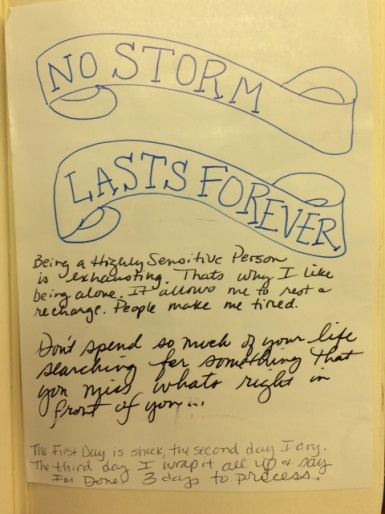 NO STORM
LASTS FOREVER
Being a Highly Sensitive Person
is exhausting. Thats why I like
being alone. It allows me to rest &
recharge. People make me tired.
Don't spend so much of your life
searching for something that
you miss whats right in
front of you...
The First Day is shock, the second day I cry.
The third day I wrap it all up & say
I'm Done! 3 days to process.